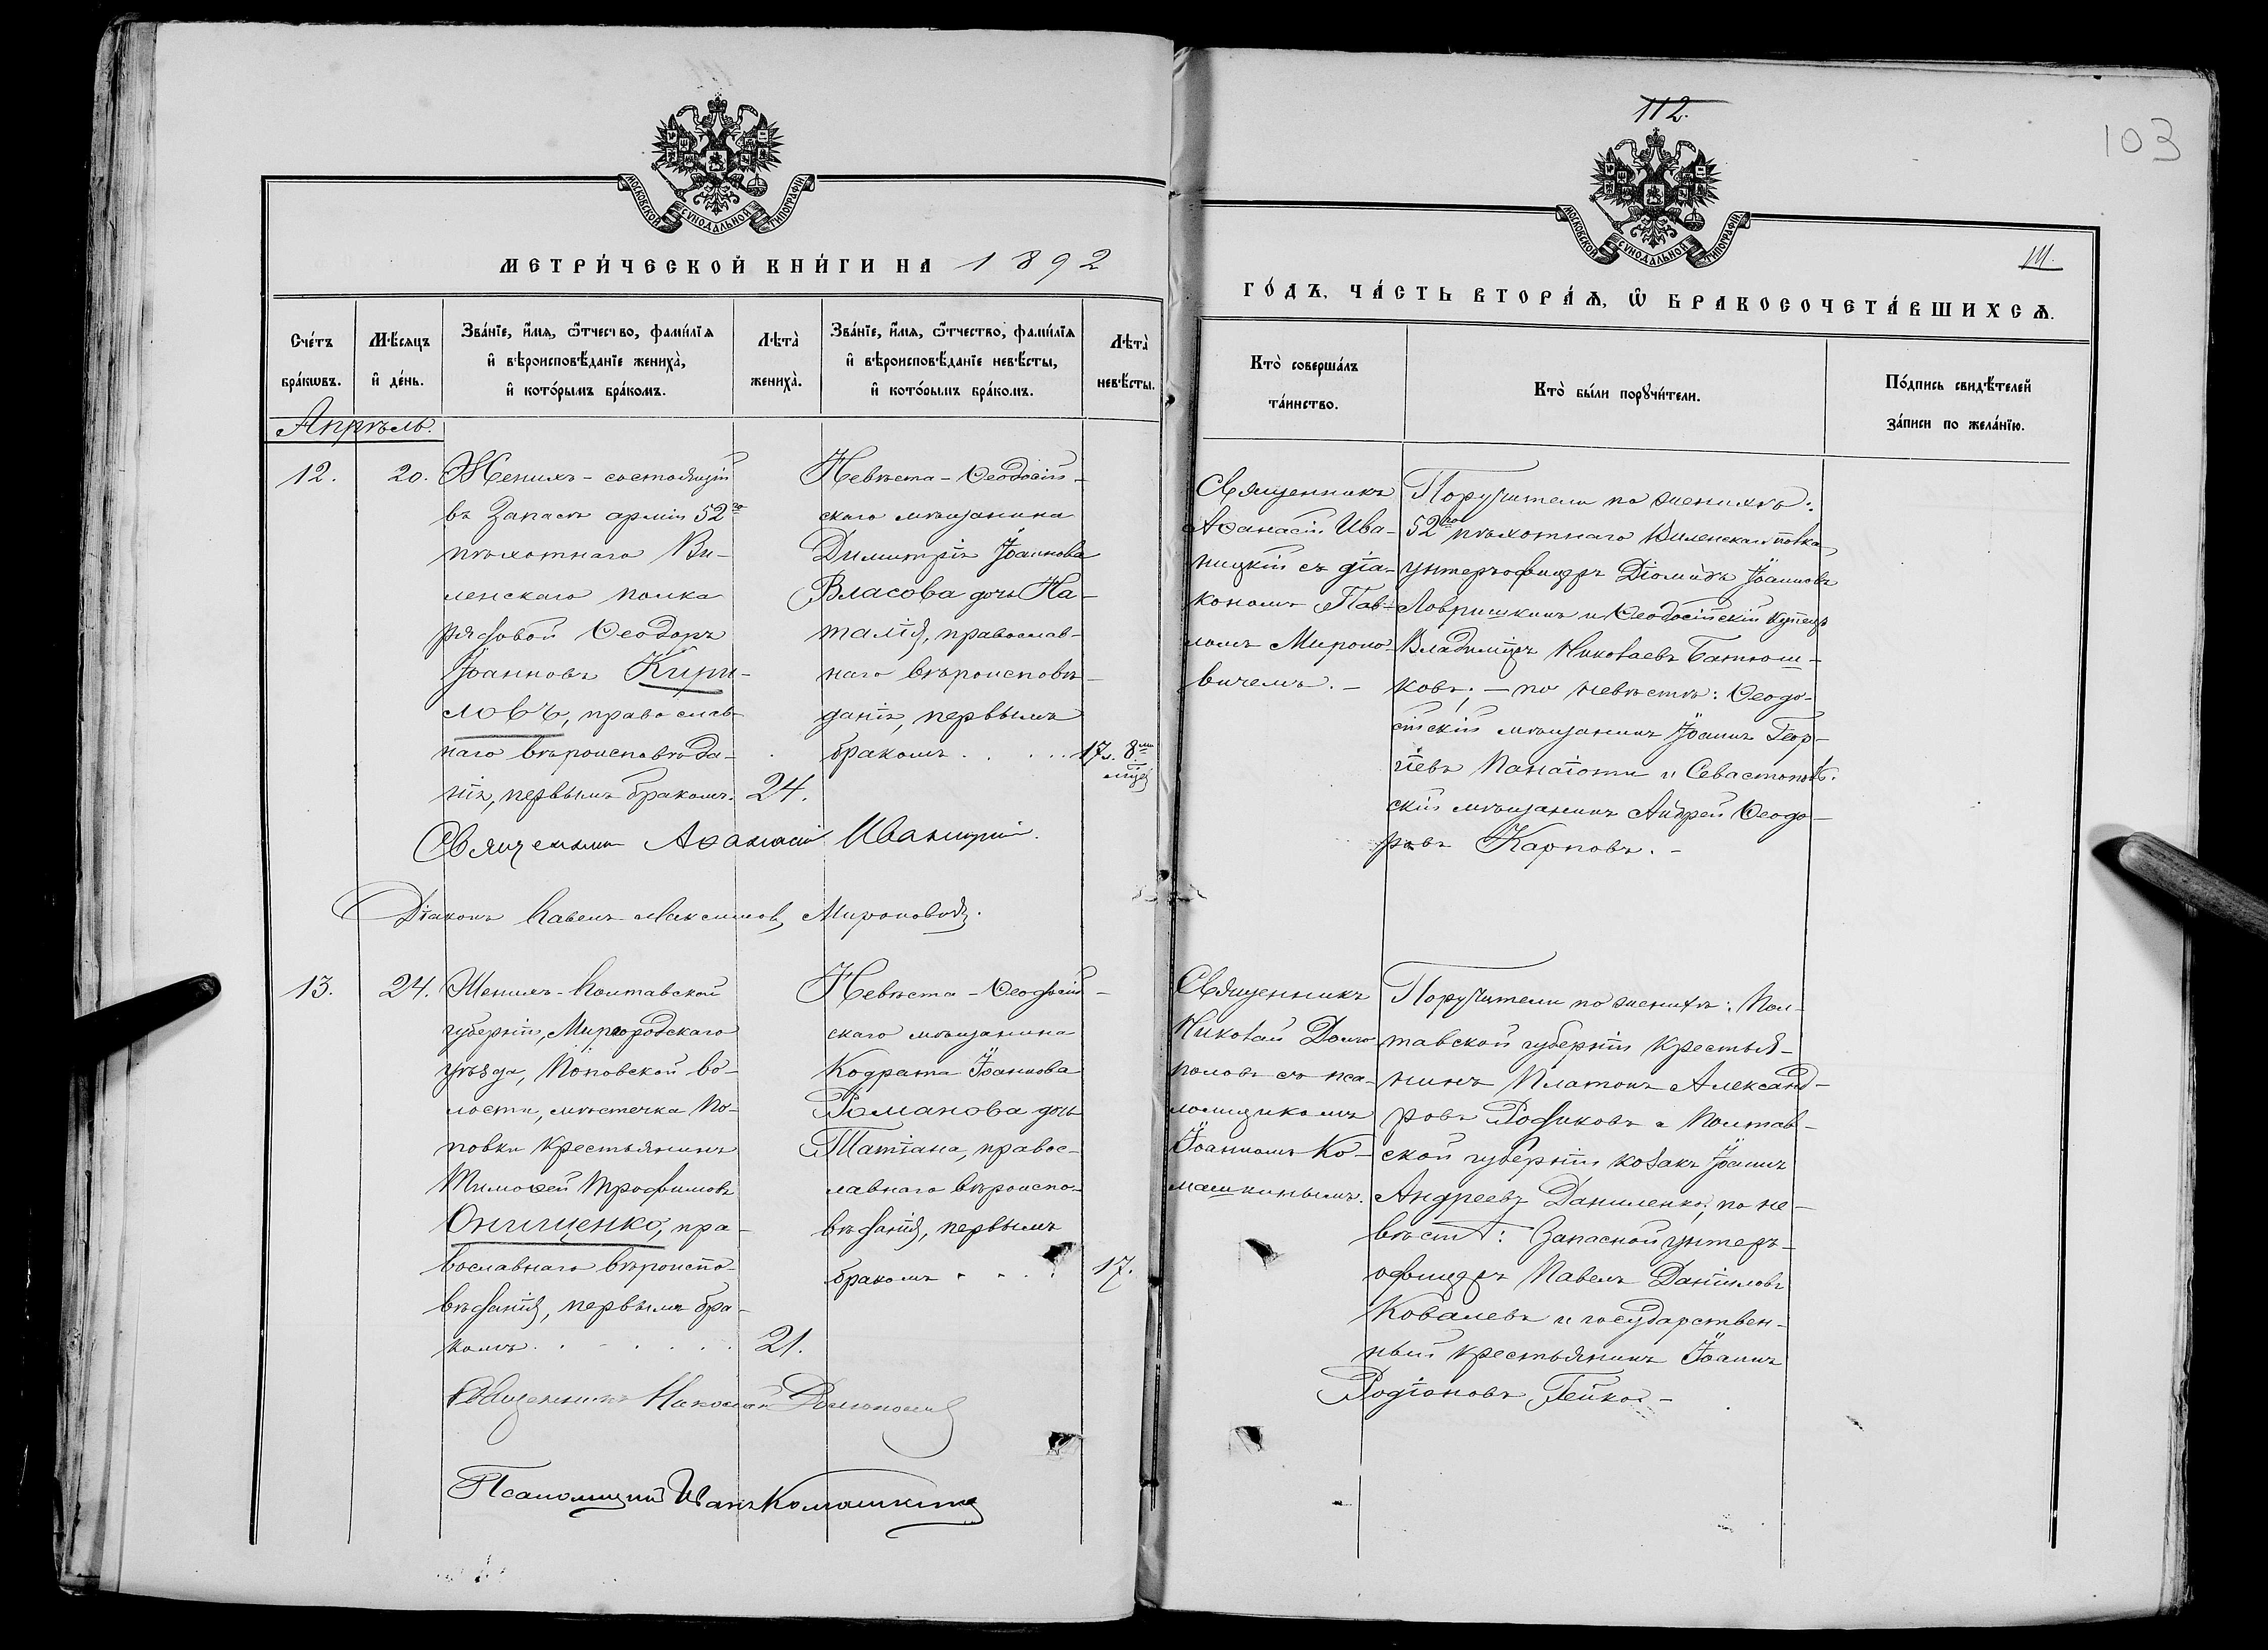 МОСКОВСКОЙ СѴНОДАЛЬНОЙ ТИПОГРАФІИ
МЕТРИ́ЧЕСКОЙ КНИ́ГИ НА 1892
Сче́тъ бра́кѡвъ.
Мѣ́сяцъ и҆ де́нь.
Зва́нїе, и҆́мѧ, ѻ҆́тчество, фами́лїѧ
и҆ вѣроисповѣ́данїе жениха̀,
и҆ кото́рымъ бра́комъ.
Лѣта̀ жениха̀.
Зва́нїе, и҆́мѧ, ѻ҆́тчество, фами́лїѧ
и҆ вѣроисповѣ́данїе невѣ́сты,
и҆ кото́рымъ бра́комъ.
Лѣта̀ невѣ́сты.
Апрѣль.
12.
20.
Женихъ - состоящій
въ запасѣ арміи 52го
пѣхотнаго Ви-
ленскаго полка
рядовой Ѳеодоръ
Іоанновъ Кири-
ловъ, православ-
наго вѣроисповѣда-
нія, первымъ бракомъ.
24.
Невѣста - Ѳеодосій-
скаго мѣщанина
Димитрія Іоаннова
Власова дочь На-
талія, православ-
наго вѣроисповѣ-
данія, первымъ
бракомъ . . . . .
17 л. 8ми
м͞цей
Священникъ Аѳанасій Иваницкій.
Діаконъ Павелъ Максимовъ Мироновичъ.
13.
24.
Женихъ - Полтавской
губерніи, Миргородскаго
уѣзда, Поповской во-
лости, мѣстечка По-
повки крестьянинъ
Тимоѳей Трофимовъ
Онищенко, пра-
вославнаго вѣроиспо-
вѣданія, первымъ бра-
комъ . . . . . .
21.
Невѣста - Ѳеодосій-
скаго мѣщанина
Кодрата Іоаннова
Романова дочь
Татіана, правос-
лавнаго вѣроиспо-
вѣданія, первымъ
бракомъ . . . .
17.
Священникъ Николай Долгополовъ
Псаломщикъ Иванъ Комашкинъ
112.
103
МОСКОВСКОЙ СѴНОДАЛЬНОЙ ТИПОГРАФІИ
111.
ГО́ДЪ, ЧА́СТЬ ВТОРА́Ѧ, Ѽ БРАКОСОЧЕТА́ВШИХСѦ.
Кто̀ соверша́лъ
та́инство.
Кто̀ бы́ли порꙋчи́тели.
По́дпись свидѣ́телей
за́писи по жела́нїю.
Священникъ
Аѳанасій Ива-
ницкій съ діа-
кономъ Пав-
ломъ Мироно-
вичемъ. -
Поручители по женихѣ:
52го пѣхотнаго Виленскаго полка
унтеръ-офицеръ Діомидъ Іоанновъ
Ловришкинъ и Ѳеодосійскій купецъ
Владиміръ Николаевъ Батюш-
ковъ; - по невѣстѣ: Ѳеодо-
сійскій мѣщанинъ Іоаннъ Геор-
гіевъ Панаіоти и Севастополь-
скій мѣщанинъ Андрей Ѳеодо-
ровъ Карповъ. -
Священникъ
Николай Долго-
половъ съ пса-
ломщикомъ
Іоанномъ Ко-
машкинымъ.
Поручители по женихѣ: Пол-
тавской губерніи крестья-
нинъ Платонъ Александ-
ровъ Родиковъ и Полтав-
ской губерніи козакъ Іоаннъ
Андреевъ Даниленко; по не-
вѣстѣ: Запасной унтеръ-
офицеръ Павелъ Даніиловъ
Ковалевъ и государствен-
ный крестьянинъ Іоаннъ
Родіоновъ Гейко. -